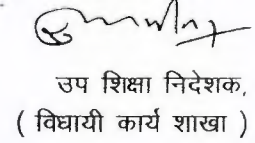 उप शिक्षा निदेशक,
( विधायी कार्य शाखा )